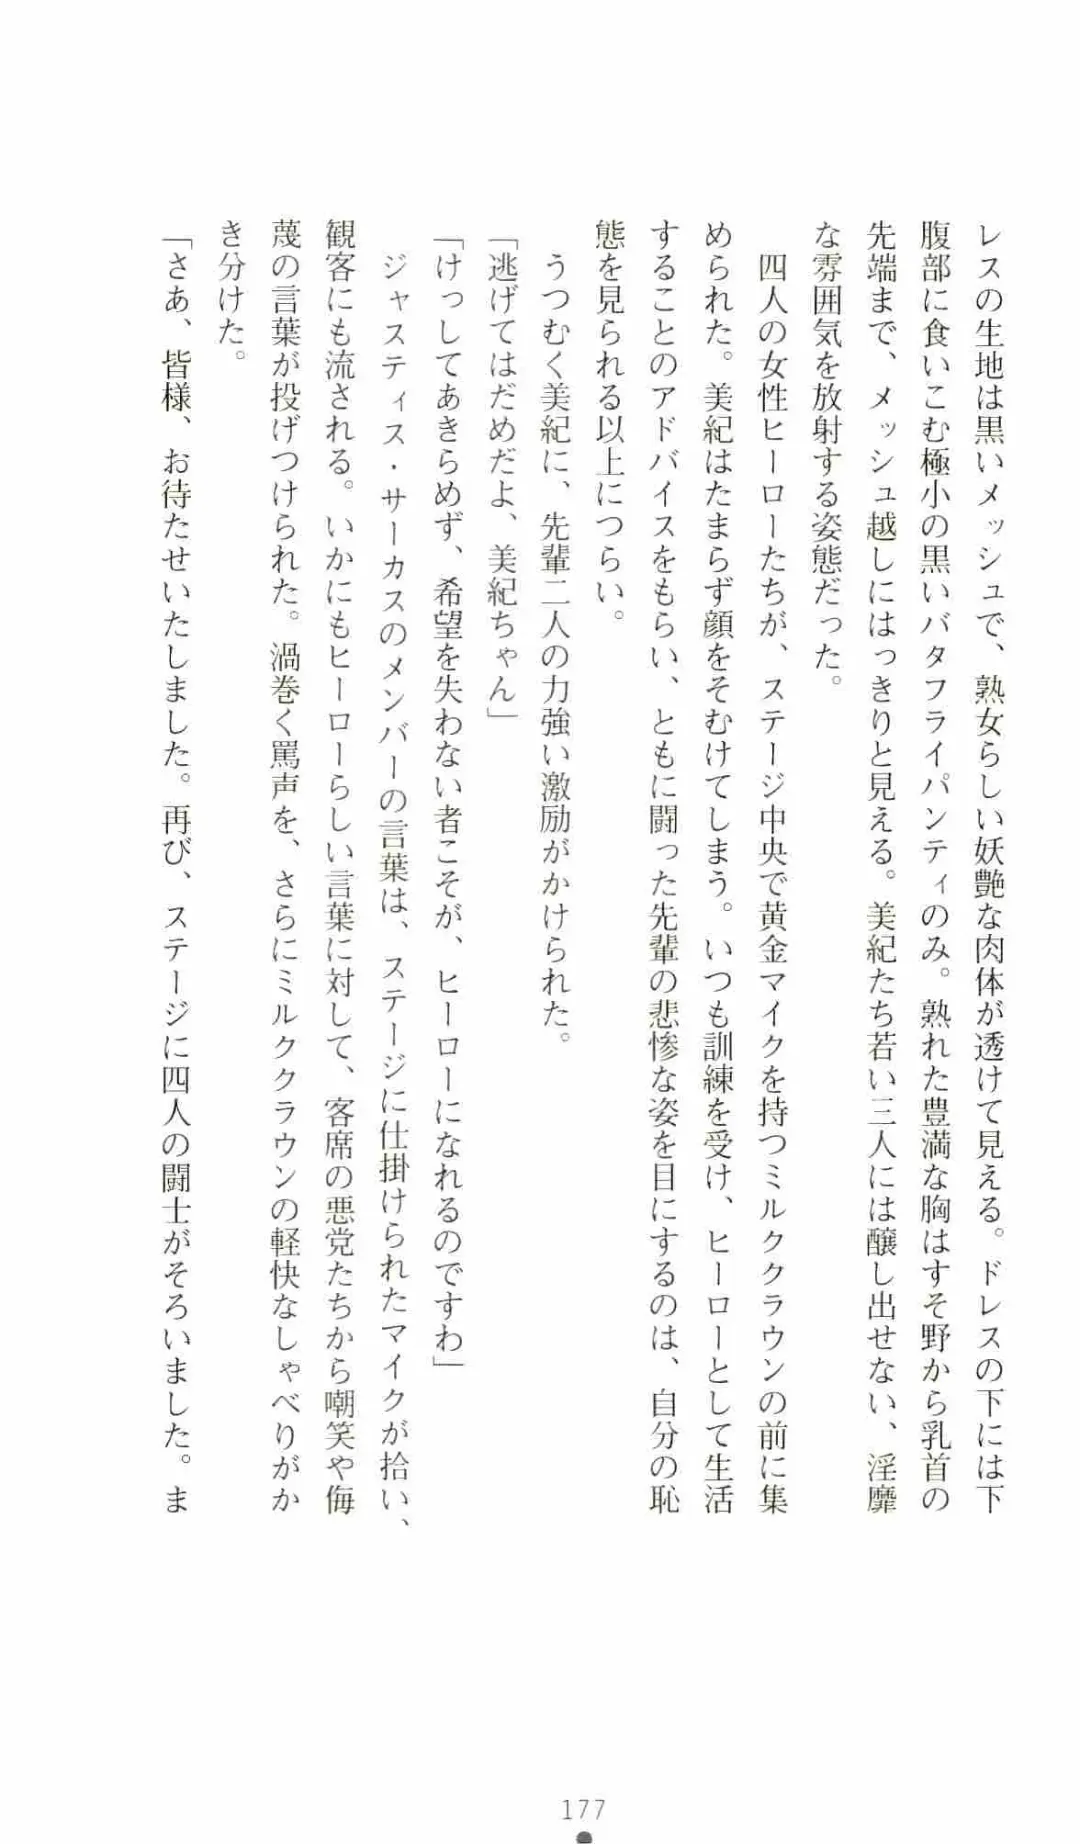 レスの生地は黒いメッシュで、熟女らしい妖艶な肉体が透けて見える。ドレスの下には下
腹部に食いこむ極小の黒いバタフライパンティのみ。熟れた豊満な胸はすそ野から乳首の
先端まで、メッシュ越しにはっきりと見える。美紀たち若い三人には醸し出せない、淫靡
な雰囲気を放射する姿態だった。
四人の女性ヒーローたちが、ステージ中央で黄金マイクを持つミルククラウンの前に集
められた。美紀はたまらず顔をそむけてしまう。いつも訓練を受け、ヒーローとして生活
することのアドバイスをもらい、ともに闘った先輩の悲惨な姿を目にするのは、自分の恥
態を見られる以上につらい。
うつむく美紀に、先輩二人の力強い激励がかけられた。
「逃げてはだめだよ、美紀ちゃん」
「けっしてあきらめず、希望を失わない者こそが、ヒーローになれるのですわ」
ジャスティス・サーカスのメンバーの言葉は、ステージに仕掛けられたマイクが拾い、
観客にも流される。いかにもヒーローらしい言葉に対して、客席の悪党たちから嘲笑や侮
蔑の言葉が投げつけられた。渦巻く罵声を、さらにミルククラウンの軽快なしゃべりがか
き分けた。
「さあ、皆様、お待たせいたしました。再び、ステージに四人の闘士がそろいました。ま
177